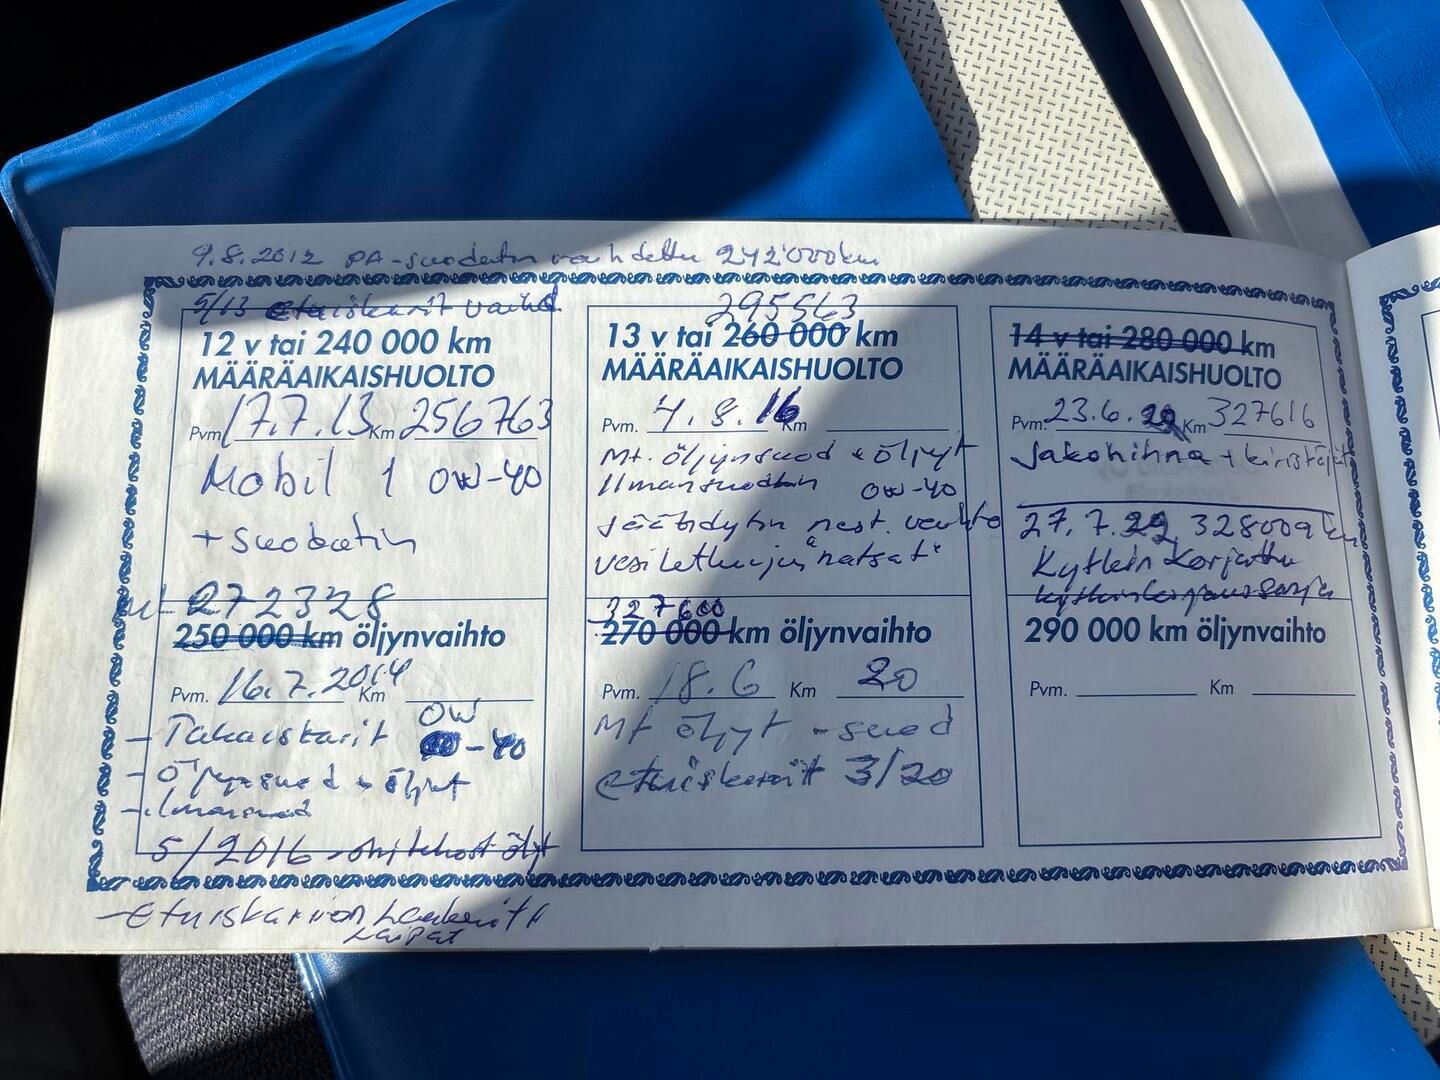 9.8.2012 PA-suodatin vaihdettu 242'000km
5/13 etuiskarit vaihd
12 v tai 240 000 km
MÄÄRÄAIKAISHUOLTO
Pvm. 17.7.13 Km 256763
Mobil 1 0W-40
+ suodatin
272328
250 000 km öljynvaihto
Pvm. 16.7.2014 Km
- Takaiskarit 0W-40
- öljynsuod + öljyt
- ilmansuod
5/2016 - ohjtehost öljyt
- Etuiskarien laakerit
Laipat
295563
13 v tai 260 000 km
MÄÄRÄAIKAISHUOLTO
Pvm. 4.8.16 Km
Mt. öljynsuod + öljyt
Ilmansuodatin 0W-40
Jäähdytin nest. vaihto
vesiletkujen "natsat"
327600
270 000 km öljynvaihto
Pvm. 18.6 Km 20
Mt öljyt - suod
etuiskarit 3/20
14 v tai 280 000 km
MÄÄRÄAIKAISHUOLTO
Pvm. 23.6. Km 327616
Jakohihna + kiristäjät
27.7. 328009 km
Kytkin Korjattu
290 000 km öljynvaihto
Pvm. Km